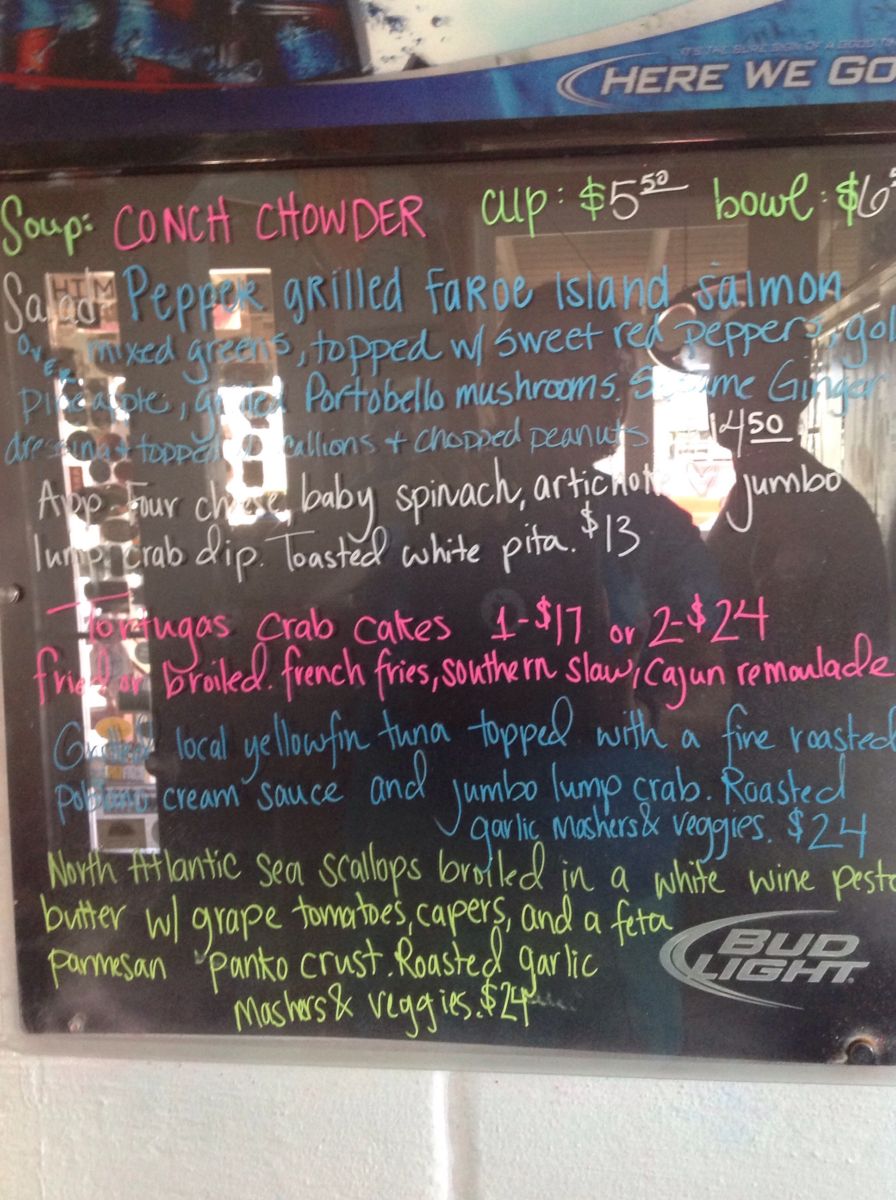 IT'S THE SURE SIGN OF A GOOD T
HERE WE GO
Soup: CONCH CHOWDER cup: $5 50 bowl: $6
Salad Pepper grilled Faroe Island Salmon
over mixed greens, topped w/ sweet red peppers, gol
pineapple, grilled Portobello mushrooms. Sesame Ginger
dressing + topped scallions + chopped peanuts 14 50
App. Four cheese, baby spinach, artichoke jumbo
lump crab dip. Toasted white pita. $13
Tortugas Crab Cakes 1-$17 or 2-$24
fried or broiled. french fries, southern slaw, Cajun remoulade
Grilled local yellowfin tuna topped with a fine roasted
poblano cream sauce and jumbo lump crab. Roasted
garlic Mashers & veggies. $24
North Atlantic Sea Scallops broiled in a white wine pesto
butter w/ grape tomatoes, capers, and a feta
parmesan panko crust. Roasted garlic
Mashers & veggies. $24
BUD
LIGHT